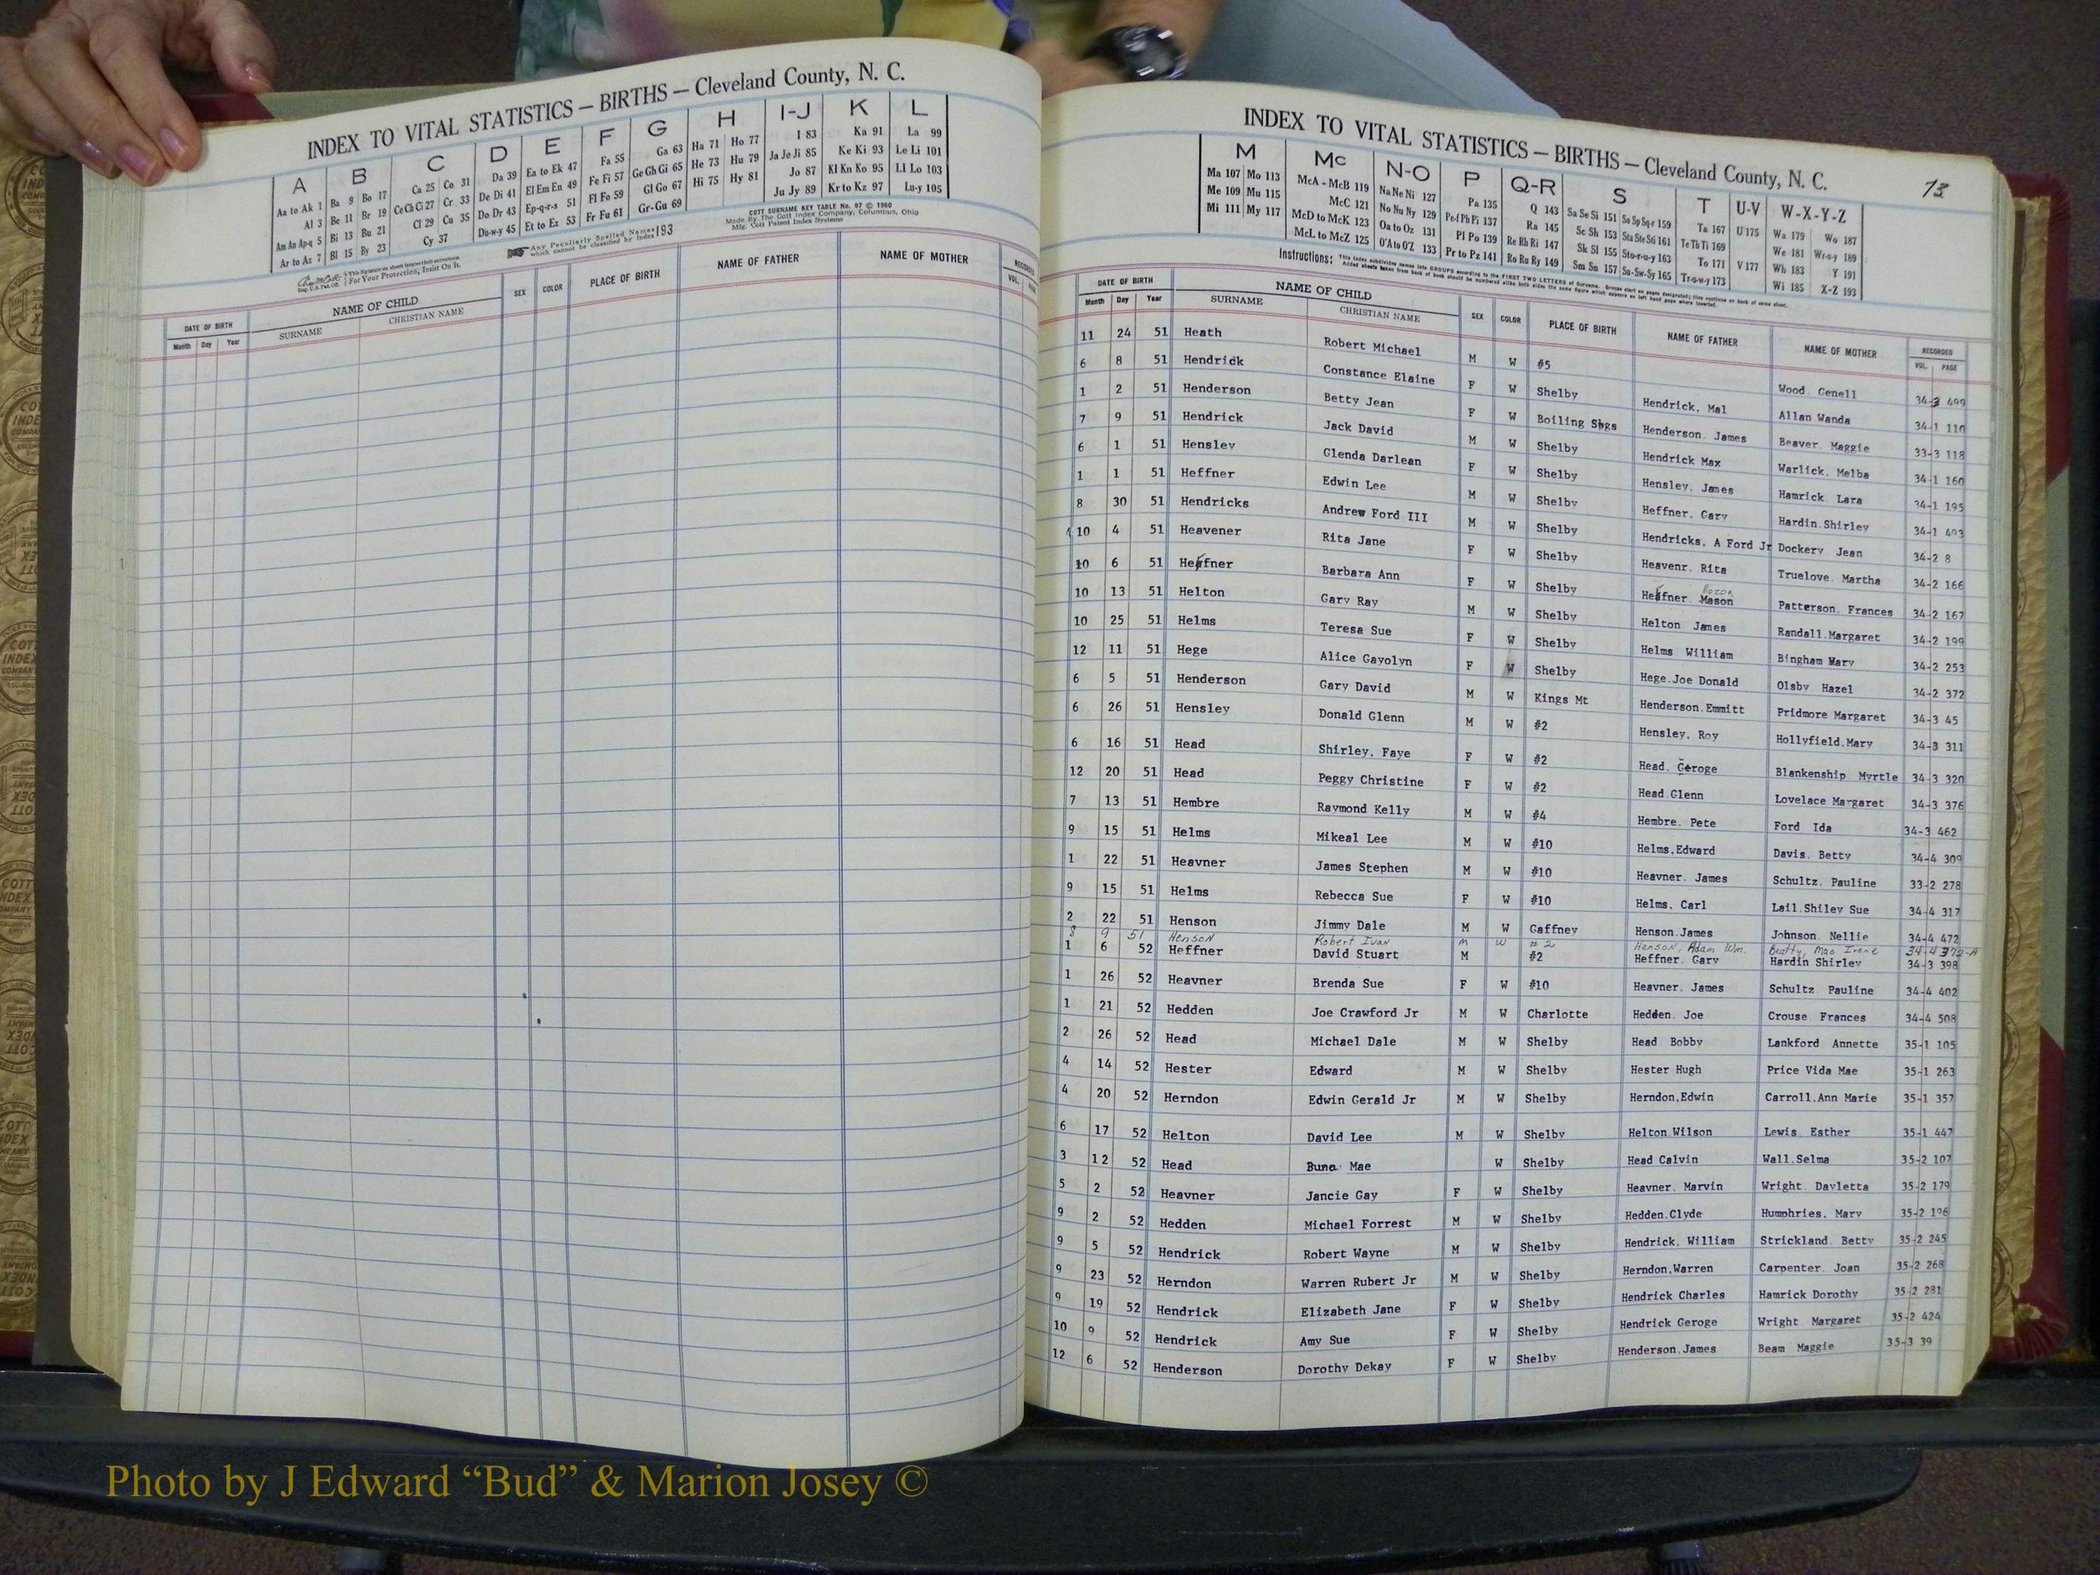 INDEX TO VITAL STATISTICS — BIRTHS — Cleveland County, N. C.
A B C D E F G H I-J K L
Aa to Ak 1 Ba 9 Bo 17 Ca 25 Co 31 Da 39 Ea to Ek 47 Fa 55 Ga 63 Ha 71 Ho 77 I 83 Ka 91 La 99
Al 3 Be 11 Br 19 Ce Ch Ci 27 Cr 33 De Di 41 El Em En 49 Fe Fi 57 Ge Gh Gi 65 He 73 Hu 79 Ja Je Ji 85 Ke Ki 93 Le Li 101
Am An Ap-q 5 Bi 13 Bu 21 Cl 29 Cu 35 Do Dr 43 Ep-q-r-s 51 Fl Fo 59 Gl Go 67 Hi 75 Hy 81 Jo 87 Kl Kn Ko 95 Ll Lo 103
Ar to Az 7 Bl 15 By 23 Cy 37 Du-w-y 45 Et to Ez 53 Fr Fu 61 Gr-Gu 69 Ju Jy 89 Kr to Kz 97 Lu-y 105
COTT SURNAME KEY TABLE No. 97 © 1960
Made By The Cott Index Company, Columbus, Ohio
Mfg. Cott Patent Index Systems
Any Peculiarly Spelled Names which cannot be classified by Index 193
For Your Protection, Insist On It.
DATE OF BIRTH NAME OF CHILD SEX COLOR PLACE OF BIRTH NAME OF FATHER NAME OF MOTHER
Month Day Year SURNAME CHRISTIAN NAME VOL.
INDEX TO VITAL STATISTICS — BIRTHS — Cleveland County, N. C. 73
M Mc N-O P Q-R S T U-V W-X-Y-Z
Ma 107 Mo 113 McA - McB 119 Na Ne Ni 127 Pa 135 Q 143 Sa Se Si 151 So Sp Sq-r 159 Ta 167 U 175 Wa 179 Wo 187
Me 109 Mu 115 McC 121 No Nu Ny 129 Pe-f Ph Pi 137 Ra 145 Sc Sh 153 Sta Ste Sti 161 Te Th Ti 169 We 181 Wr-u-y 189
Mi 111 My 117 McD to McK 123 Oa to Oz 131 Pl Po 139 Re Rh Ri 147 Sk Sl 155 Sto-r-u-y 163 To 171 V 177 Wh 183 Y 191
McL to McZ 125 O'A to O'Z 133 Pr to Pz 141 Ro Ru Ry 149 Sm Sn 157 Su-Sw-Sy 165 Tr-u-w-y 173 Wi 185 X-Z 193
Instructions:
DATE OF BIRTH NAME OF CHILD SEX COLOR PLACE OF BIRTH NAME OF FATHER NAME OF MOTHER RECORDED
Month Day Year SURNAME CHRISTIAN NAME VOL. PAGE
11 24 51 Heath Robert Michael M W #5 Wood Genell 34-3 499
6 8 51 Hendrik Constance Elaine F W Shelby Hendrick, Mal Allan Wanda 34-1 110
1 2 51 Henderson Betty Jean F W Boiling Sbgs Henderson. James Beaver. Maggie 33-3 118
7 9 51 Hendrick Jack David M W Shelby Hendrick Max Warlick. Melba 34-1 160
6 1 51 Hensley Glenda Darlean F W Shelby Hensley. James Hamrick Lara 34-1 195
1 1 51 Heffner Edwin Lee M W Shelby Heffner. Gary Hardin.Shirley 34-1 493
8 30 51 Hendricks Andrew Ford III M W Shelby Hendricks, A Ford Jr Dockery Jean 34-2 8
10 4 51 Heavener Rita Jane F W Shelby Heavenr. Rita Truelove. Martha 34-2 166
10 6 51 Heffner Barbara Ann F W Shelby Heffner Mason Patterson. Frances 34-2 167
10 13 51 Helton Gary Ray M W Shelby Helton James Randall.Margaret 34-2 199
10 25 51 Helms Teresa Sue F W Shelby Helms William Bingham Mary 34-2 253
12 11 51 Hege Alice Gayolyn F W Shelby Hege.Joe Donald Olsby Hazel 34-2 372
6 5 51 Henderson Gary David M W Kings Mt Henderson.Emmitt Pridmore Margaret 34-3 45
6 26 51 Hensley Donald Glenn M W #2 Hensley, Roy Hollyfield.Mary 34-3 311
6 16 51 Head Shirley, Faye F W #2 Head. Geroge Blankenship Myrtle 34-3 320
12 20 51 Head Peggy Christine F W #2 Head Glenn Lovelace Margaret 34-3 376
7 13 51 Hembre Raymond Kelly M W #4 Hembre. Pete Ford Ida 34-3 462
9 15 51 Helms Mikeal Lee M W #10 Helms,Edward Davis. Betty 34-4 309
1 22 51 Heavner James Stephen M W #10 Heavner. James Schultz. Pauline 33-2 278
9 15 51 Helms Rebecca Sue F W #10 Helms. Carl Lail.Shiley Sue 34-4 317
2 22 51 Henson Jimmy Dale M W Gaffney Henson.James Johnson Nellie 34-4 472
8 9 51 Henson Robert Ivan M W #2 Henson, Adam Wm. Beatty, Mae Irene 34-4 372-A
1 6 52 Heffner David Stuart M #2 Heffner. Gary Hardin Shirley 34-3 398
1 26 52 Heavner Brenda Sue F W #10 Heavner. James Schultz Pauline 34-4 402
1 21 52 Hedden Joe Crawford Jr M W Charlotte Hedden. Joe Crouse Frances 34-4 508
2 26 52 Head Michael Dale M W Shelby Head Bobby Lankford Annette 35-1 105
4 14 52 Hester Edward M W Shelby Hester Hugh Price Vida Mae 35-1 263
4 20 52 Herndon Edwin Gerald Jr M W Shelby Herndon,Edwin Carroll.Ann Marie 35-1 357
6 17 52 Helton David Lee M W Shelby Helton Wilson Lewis Esther 35-1 447
3 12 52 Head Buna Mae W Shelby Head Calvin Wall.Selma 35-2 107
5 2 52 Heavner Jancie Gay F W Shelby Heavner. Marvin Wright Dayletta 35-2 179
9 2 52 Hedden Michael Forrest M W Shelby Hedden.Clyde Humphries. Mary 35-2 196
9 5 52 Hendrick Robert Wayne M W Shelby Hendrick. William Strickland Betty 35-2 245
9 23 52 Herndon Warren Rubert Jr M W Shelby Herndon,Warren Carpenter Joan 35-2 268
9 19 52 Hendrick Elizabeth Jane F W Shelby Hendrick Charles Hamrick Dorothy 35-2 281
10 9 52 Hendrick Amy Sue F W Shelby Hendrick Geroge Wright Margaret 35-2 424
12 6 52 Henderson Dorothy Dekay F W Shelby Henderson.James Beam Maggie 35-3 39
Photo by J Edward “Bud” & Marion Josey ©